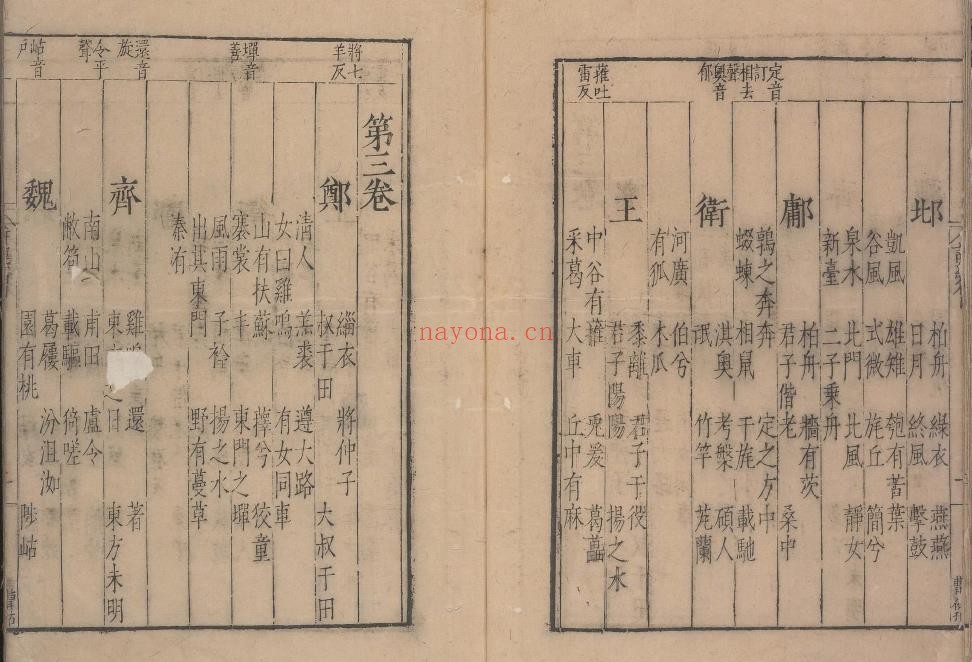 定音訂
相去聲
奧音郁
蓷吐雷反
邶 柏舟 綠衣 燕燕
日月 終風 擊鼓
凱風 雄雉 匏有苦葉
谷風 式微 旄丘 簡兮
泉水 北門 北風 靜女
新臺 二子乘舟
鄘 柏舟 牆有茨
君子偕老 桑中
鶉之奔奔 定之方中
蝃蝀 相鼠 干旄 載馳
衛 淇奧 考槃 碩人
氓 竹竿 芄蘭
河廣 伯兮
有狐 木瓜
王 黍離 君子于役
君子陽陽 揚之水
中谷有蓷 兔爰 葛藟
采葛 大車 丘中有麻
將七羊反
墠音善
還音旋
令平聲
岵音戶
第三卷
鄭 緇衣 將仲子
叔于田 大叔于田
清人 羔裘 遵大路
女曰雞鳴 有女同車
山有扶蘇 蘀兮 狡童
褰裳 丰 東門之墠
風雨 子衿 揚之水
出其東門 野有蔓草
溱洧
齊 雞鳴 還 著
東 之日 東方未明
南山 甫田 盧令
敝笱 載驅 猗嗟
魏 葛屨 汾沮洳
園有桃 陟岵
nayona.cn